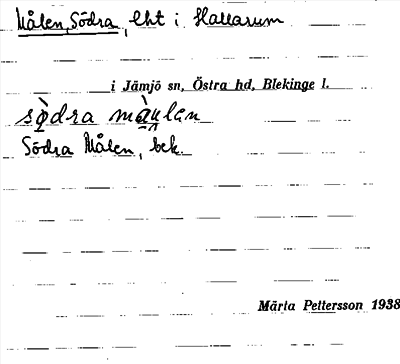 Målen, Södra, lht i Hallarum
i Jämjö sn, Östra hd, Blekinge l.
sö̀dra mà̱u̯lan
Södra Målen, bek.
Märta Pettersson 1938